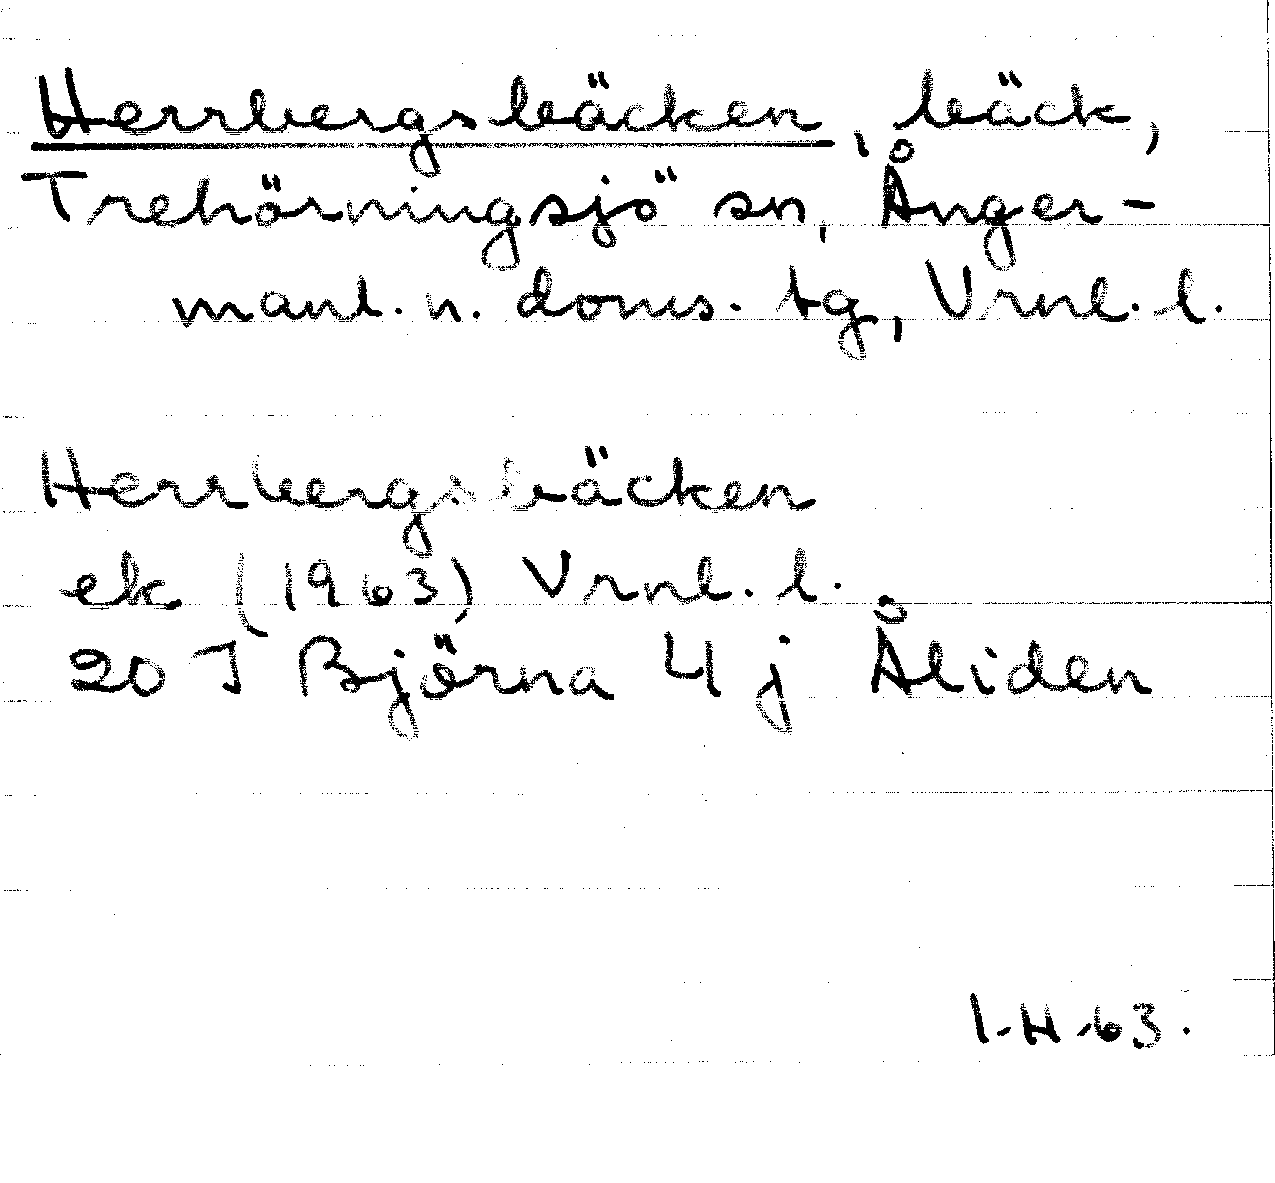 Herrbergsbäcken, bäck,
Trehörningsjö sn, Ånger-
manl. n. doms. tg, Vrnl. l.
Herrbergsbäcken
ek (1963) Vrnl. l.
20 J Björna 4 j Åliden
I.H.63.